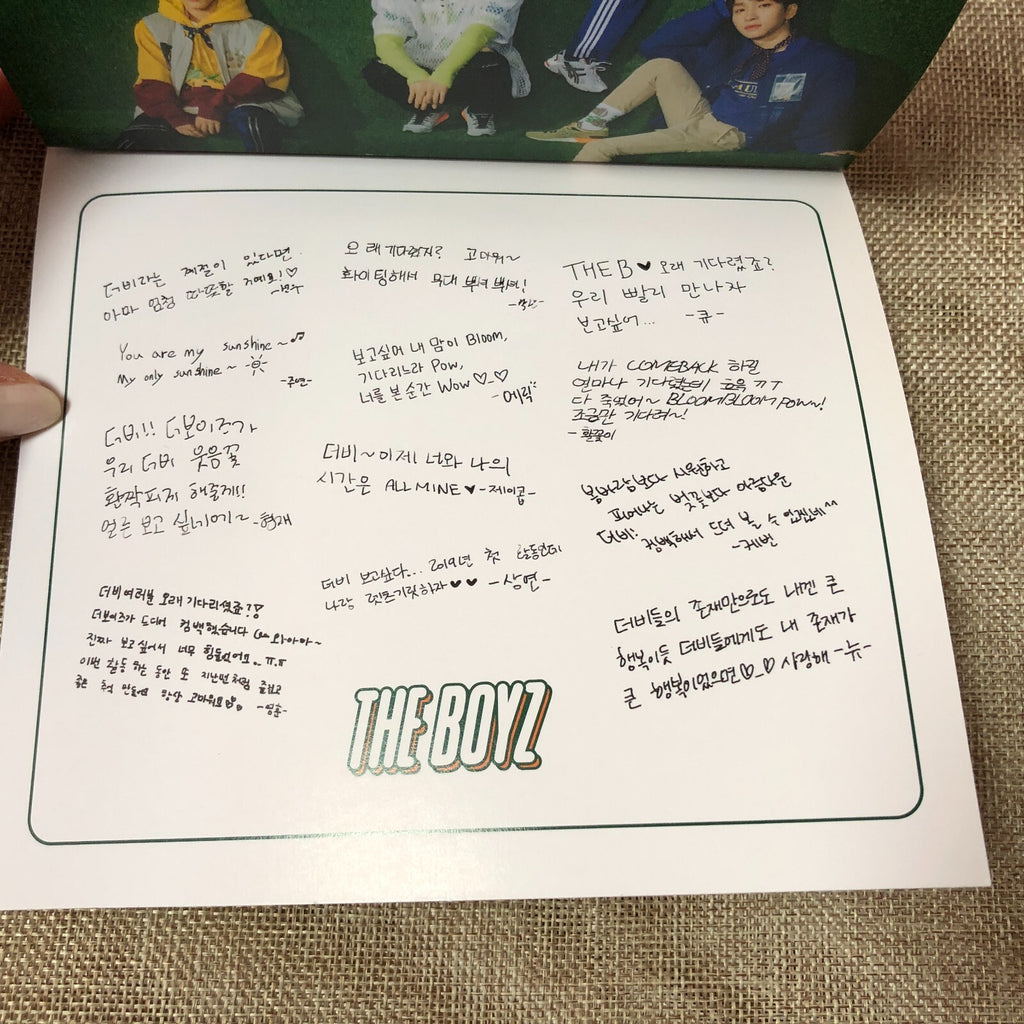 더비라는 계절이 있다면
아마 엄청 따뜻할 거예요!♡
-선우-
You are my sunshine~♫
My only sunshine~☀
-주연-
더비!! 더보이즈가
우리 더비 웃음꽃
활짝피게 해줄게!!
얼른 보고 싶네에~ -현재
더비여러분 오래기다리셨죠?!
더보이즈가 드디어 컴백했습니다 와아아~
진짜 보고싶어서 너무 힘들었어요.. ㅠ.ㅠ
이번 활동 하는 동안 또 지난번처럼 즐겁고
좋은 추억 만들어요 항상 고마워요
-영훈-
오래기다렸지? 고마워~
화이팅해서 무대 뿌셔뿌셔!
보고싶어 내 맘이 Bloom,
기다리느라 Pow,
너를 본 순간 Wow♡_♡
-에릭
더비~이제 너와 나의
시간은 ALL MINE♥-제이콥-
더비 보고싶다... 2019년 첫 활동인데
나랑 렛츠기릿하자♥♥ -상연-
THE B♥ 오래 기다렸죠?
우리 빨리 만나자
보고싶어... -큐-
내가 COMEBACK 하길
얼마나 기다렸는데 흐윽 ㅠㅜ
다 죽었어~ BLOOMBLOOM POW~!
조금만 기다려~!
-활꽃이
봄바람보다 시원하고
피어나는 벚꽃보다 아름다운
더비! 컴백해서 드뎌 볼 수 있겠네^^
-케빈
더비들의 존재만으로도 내겐 큰
행복이듯 더비들에게도 내 존재가
큰 행복이었으면♡_♡ 사랑해 -뉴-
THE BOYZ